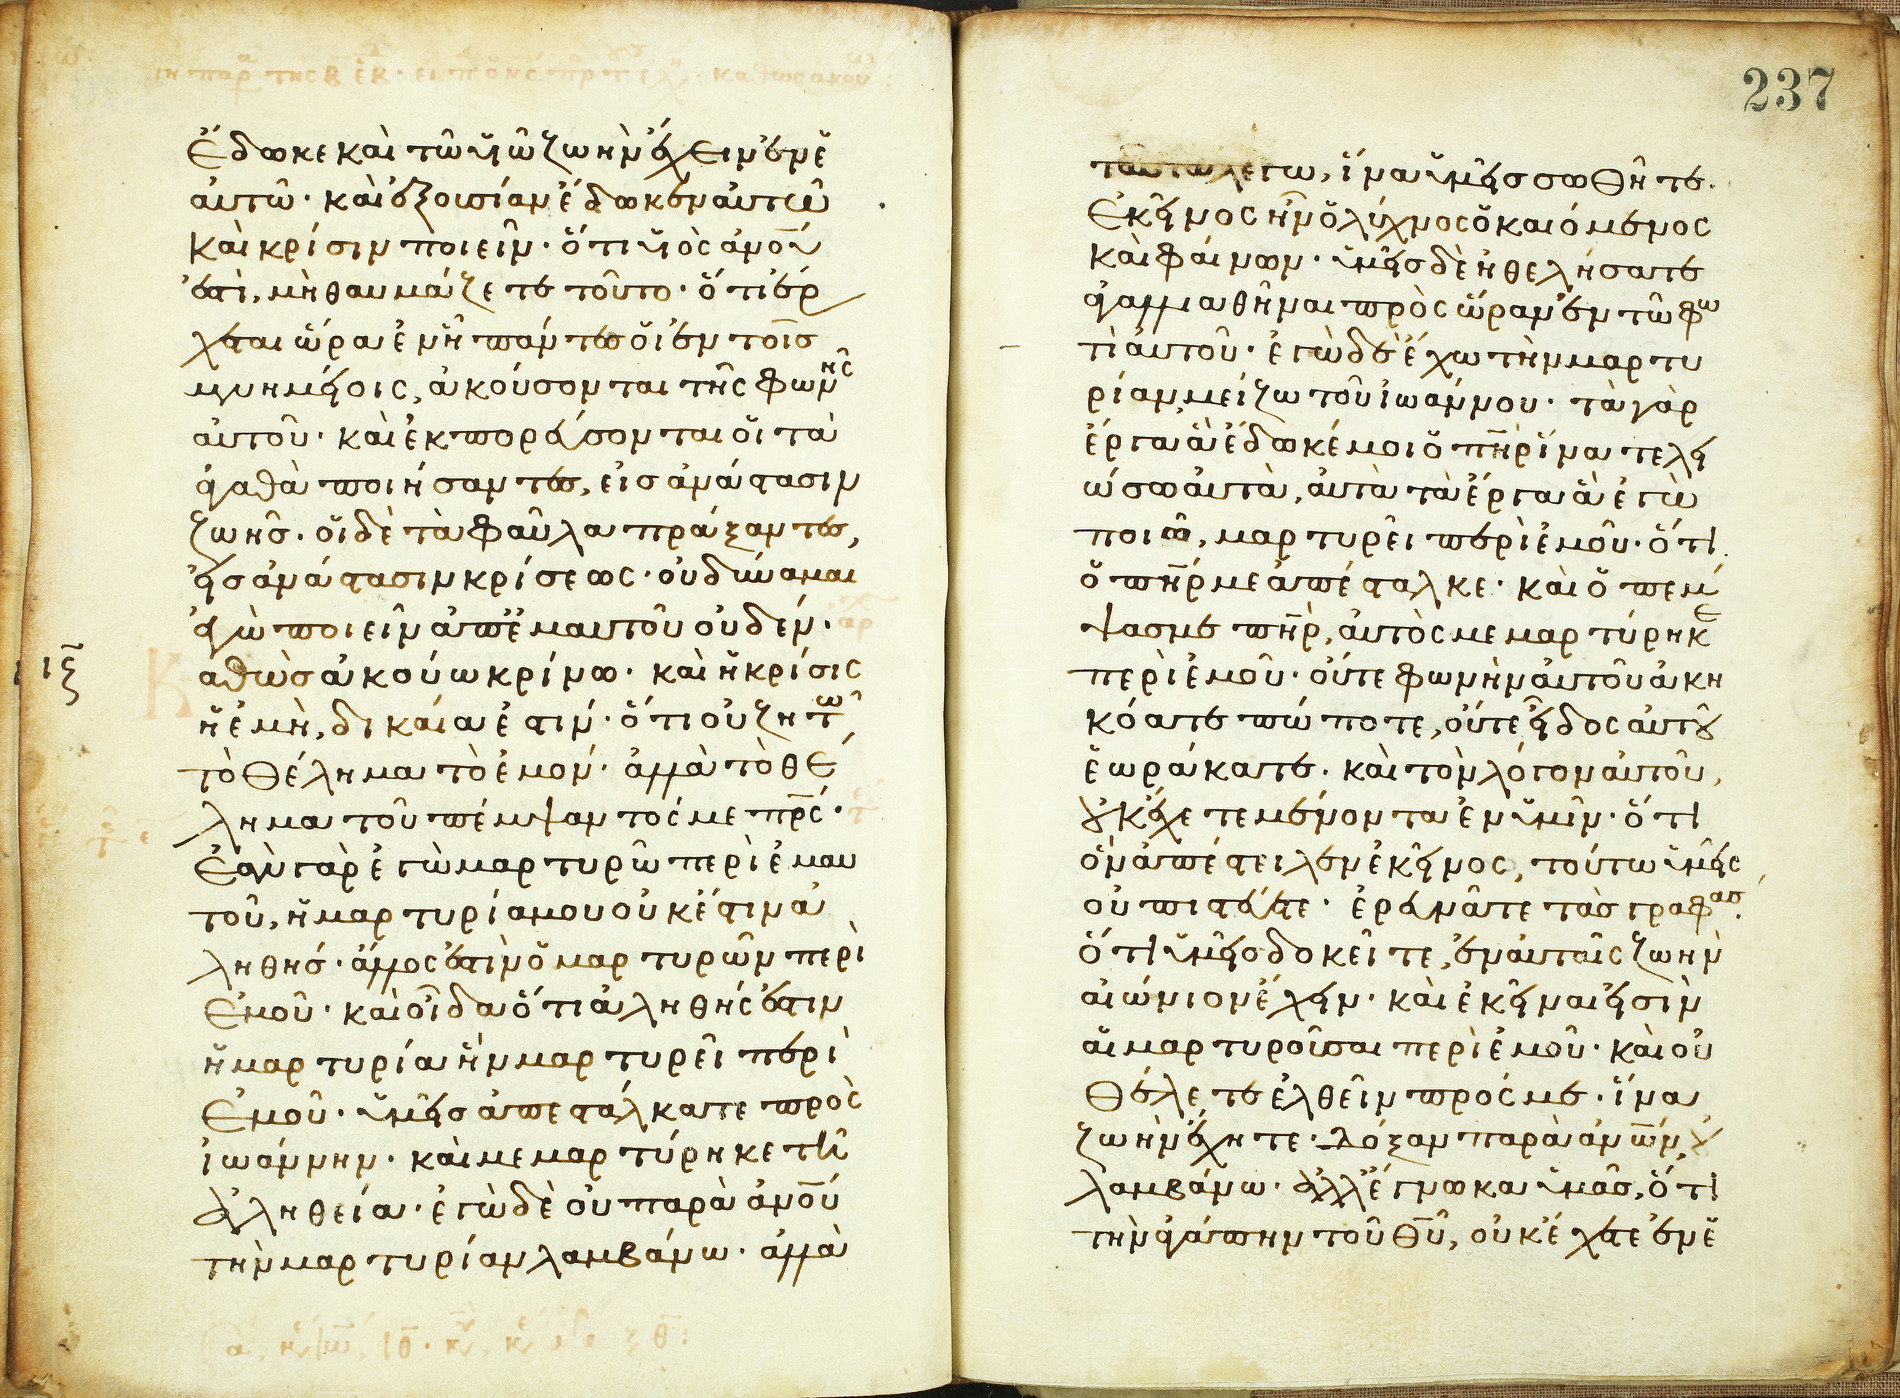 τη παρ της β εβ· ει π ο κς πρ τ ελ· καθως ακου
ἔδωκε καὶ τῶ υἱῶ ζωὴν ἔχειν ἐν ἑ
αὐτῶ· καὶ ἐξουσίαν ἔδωκεν αὐτῶ
καὶ κρίσιν ποιεῖν· ὅτι υἱὸς ἀνου
ἐστί, μὴ θαυμάζετε τοῦτο· ὅτι ἔρ
χεται ὥρα ἐν ἧ πάντες οἱ ἐν τοῖς
μνημείοις, ἀκούσονται τῆς φωνῆς
αὐτοῦ· καὶ ἐκπορεύσονται οἱ τὰ
ἀγαθὰ ποιήσαντες, εἰς ἀνάστασιν
ζωῆς· οἱ δὲ τὰ φαῦλα πράξαντες,
εἰς ἀνάστασιν κρίσεως· οὐ δύναμαι
ἐγὼ ποιεῖν ἀπ' ἐμαυτοῦ οὐδέν·
αρχ
ιξ
Καθὼς ἀκούω κρίνω· καὶ ἡ κρίσις
ἡ ἐμὴ, δικαία ἐστίν· ὅτι οὐ ζητῶ
τὸ θέλημα τὸ ἐμόν· ἀλλὰ τὸ θέ
λημα τοῦ πέμψαντός με πρς·
Ἐὰν γὰρ ἐγὼ μαρτυρῶ περὶ ἐμαυ
τοῦ, ἡ μαρτυρία μου οὐκ ἔστιν ἀ
ληθής· ἄλλος ἐστὶν ὁ μαρτυρῶν περὶ
ἐμοῦ· καὶ οἶδα ὅτι ἀληθής ἐστιν
ἡ μαρτυρία ἣν μαρτυρεῖ περὶ
ἐμοῦ· ὑμεῖς ἀπεστάλκατε πρὸς
ἰωάννην· καὶ μεμαρτύρηκε τῆ
ἀληθεία· ἐγὼ δὲ οὐ παρὰ ἀνου
τὴν μαρτυρίαν λαμβάνω· ἀλλὰ
237
ταῦτα λέγω, ἵνα ὑμεῖς σωθῆτε.
Ἐκεῖνος ἦν ὁ λύχνος ὁ καιόμενος
καὶ φαίνων· ὑμεῖς δὲ ἠθελήσατε
ἀγαλλιαθῆναι πρὸς ὥραν ἐν τῶ φω
τὶ αὐτοῦ· ἐγὼ δὲ ἔχω τὴν μαρτυ
ρίαν, μείζω τοῦ ἰωάννου· τὰ γὰρ
ἔργα ἃ ἔδωκέ μοι ὁ πηρ ἵνα τελει
ώσω αὐτὰ, αὐτὰ τὰ ἔργα ἃ ἐγὼ
ποιῶ, μαρτυρεῖ περὶ ἐμοῦ· ὅτι
ὁ πηρ με ἀπέσταλκε· καὶ ὁ πέμ
ψας με πηρ, αὐτὸς μεμαρτύρηκε
περὶ ἐμοῦ· οὔτε φωνὴν αὐτοῦ ἀκη
κόατε πώποτε, οὔτε εἶδος αὐτοῦ
ἑωράκατε· καὶ τὸν λόγον αὐτοῦ,
οὐκ ἔχετε μένοντα ἐν ὑμῖν· ὅτι
ὃν ἀπέστειλεν ἐκεῖνος, τούτω ὑμεῖς
οὐ πιστεύετε· ἐρευνᾶτε τὰς γραφας·
ὅτι ὑμεῖς δοκεῖτε, ἐν αὐταῖς ζωὴν
αἰώνιον ἔχειν· καὶ ἐκεῖναι εἰσὶν
αἱ μαρτυροῦσαι περὶ ἐμοῦ· καὶ οὐ
θέλετε ἐλθεῖν πρός με· ἵνα
ζωὴν ἔχητε· δόξαν παρὰ ἀνων, οὐ
λαμβάνω· ἀλλ' ἔγνωκα ὑμᾶς, ὅτι
τὴν ἀγάπην τοῦ θυ, οὐκ ἔχετε ἐν ἑ